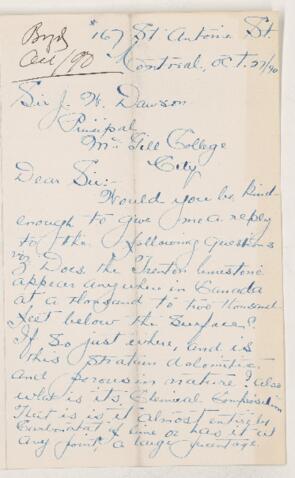 Byrd
Oct/90
#167 St Antoine St.
Montreal, OCT. 27/90
Sir J. W. Dawson
Principal
McGill College
City
Dear Sir:-
Would you be kind-
enough to give me a reply
to the following questions
viz Does the Trenton limestone
appear anywhere in Canada
at a thousand to two thousand
feet below the surface?
If so just where, and is
this stratum dolomitic
and porous in nature? Also
what is its Chemical Composition
That is is it almost entirely
Carbonate of lime or has it at
any point, a large percentage